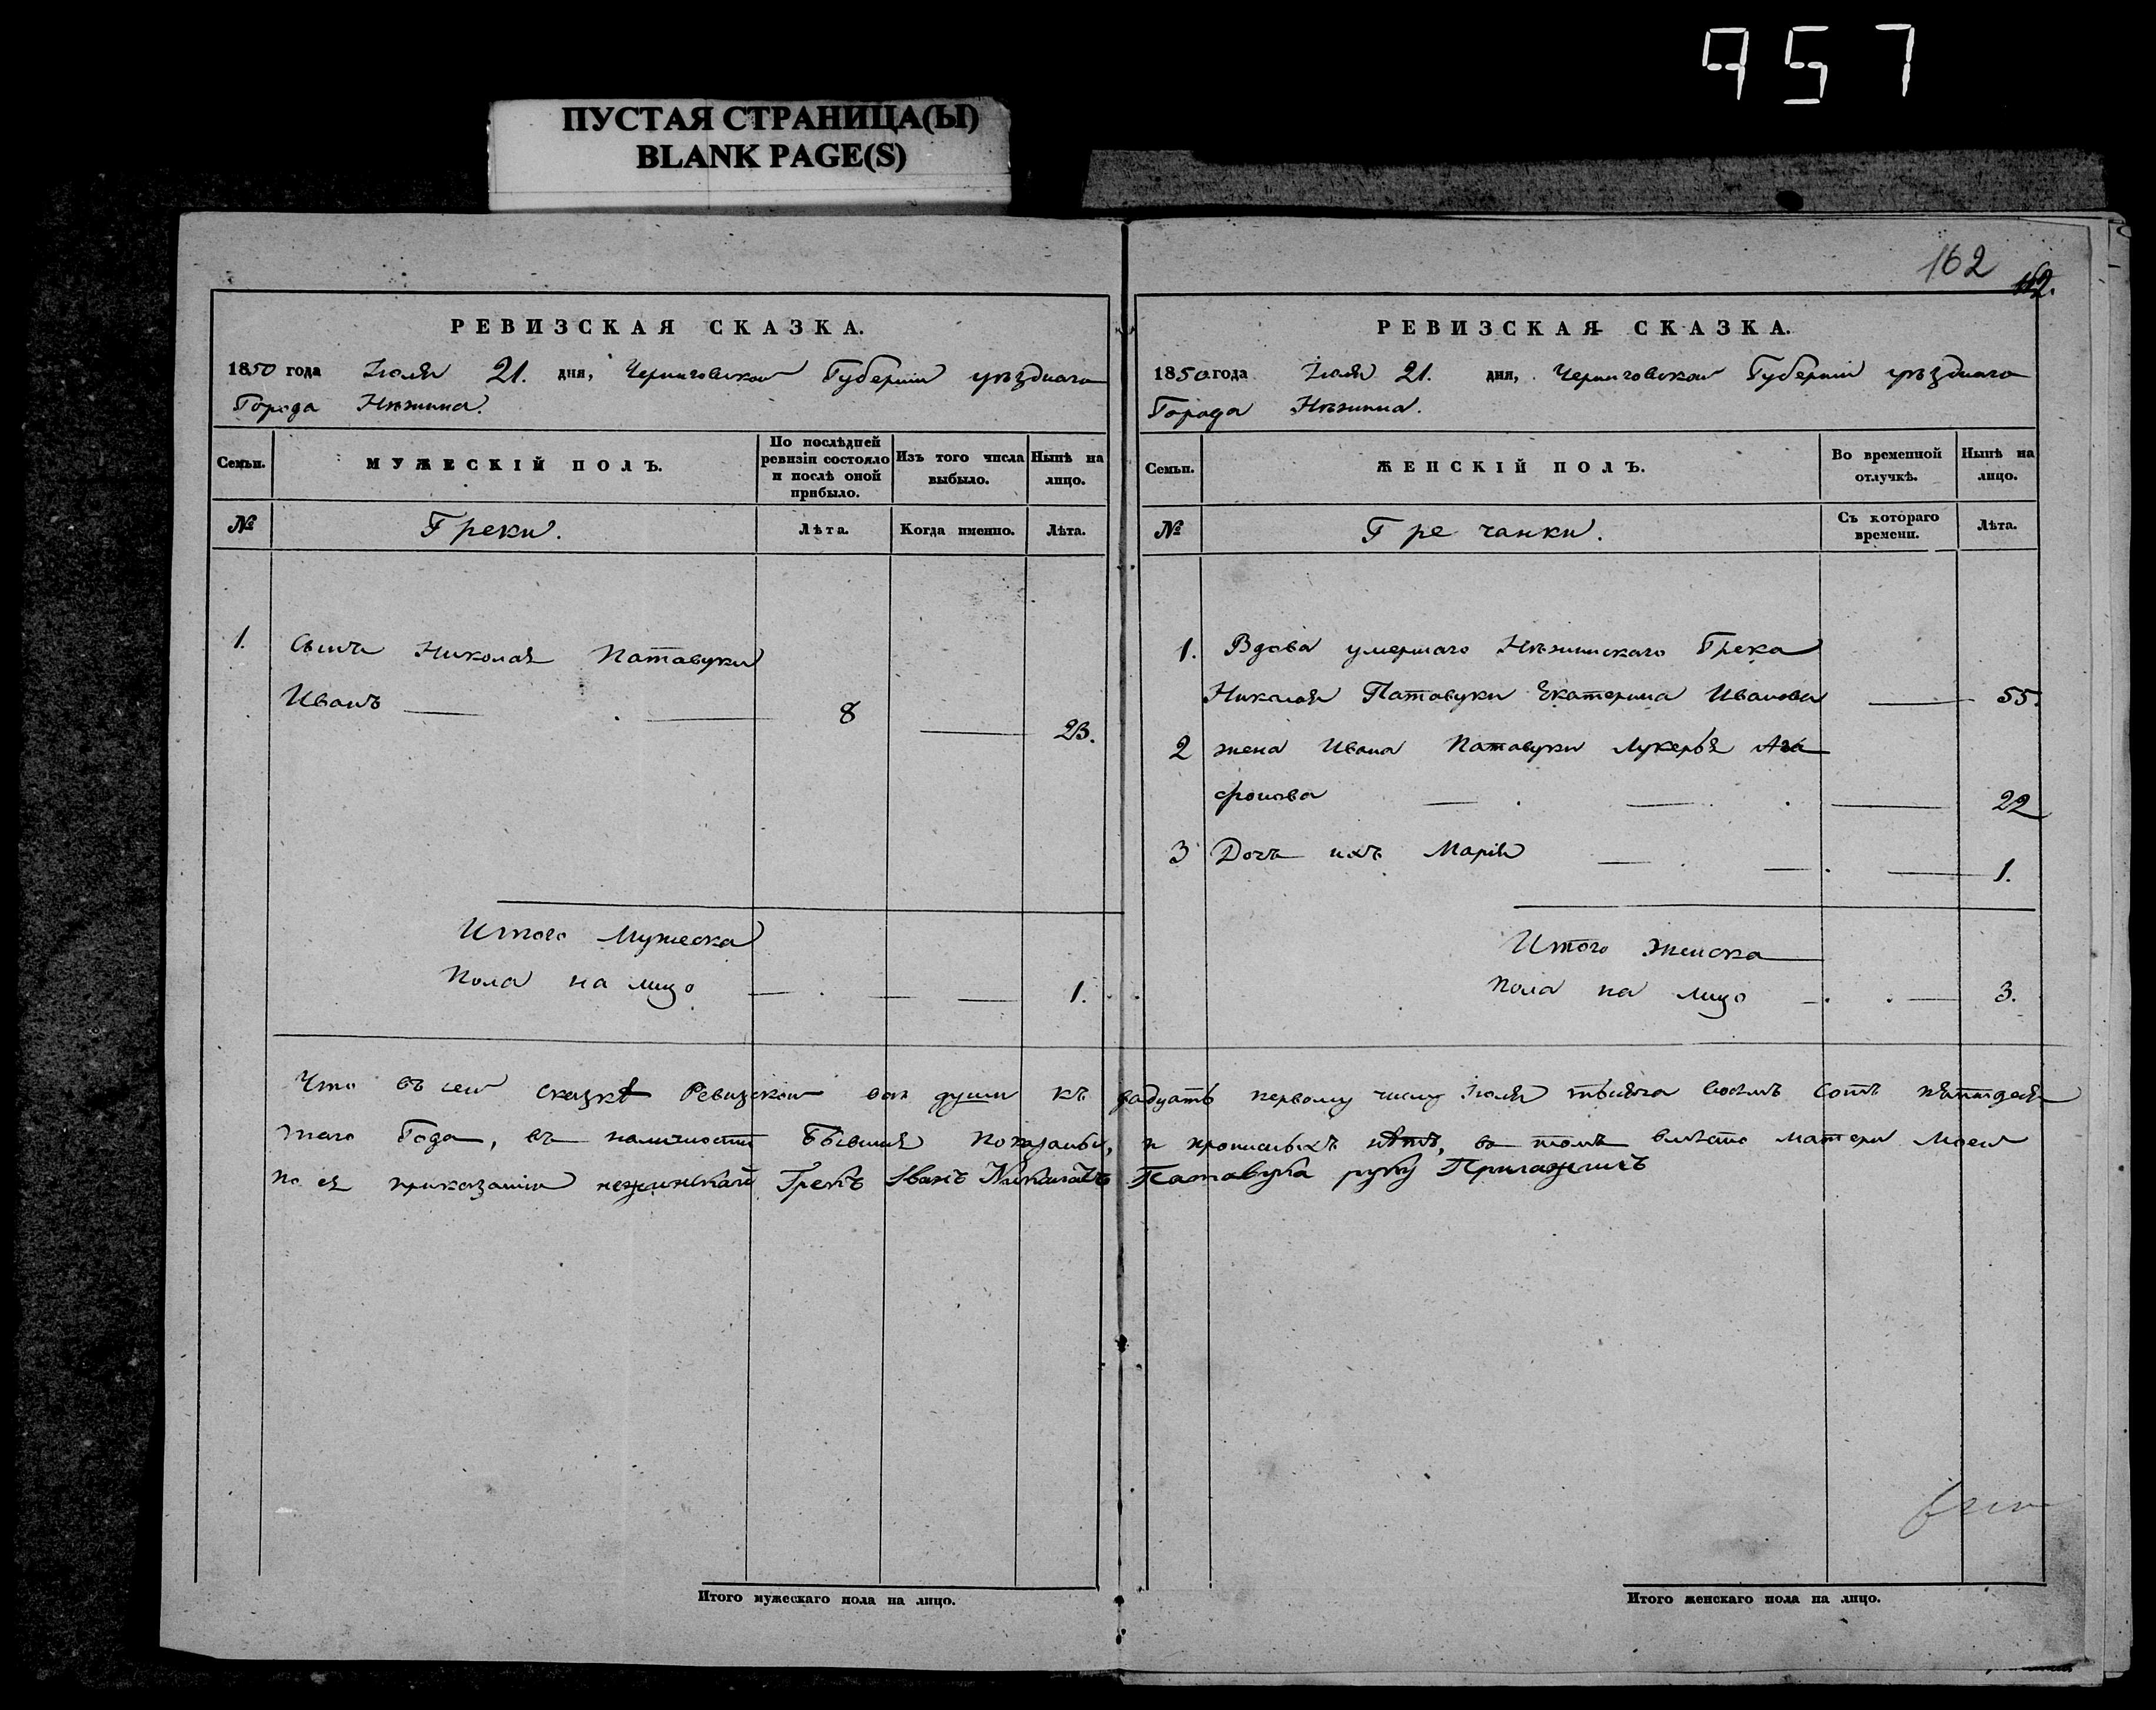 957
ПУСТАЯ СТРАНИЦА(Ы)
BLANK PAGE(S)
РЕВИЗСКАЯ СКАЗКА.
1850 года Іюля 21. дня, Черниговской Губерніи уѣзднаго
Города Нѣжина.
Семьи.
МУЖЕСКІЙ ПОЛЪ.
По послѣдней ревизіи состояло и послѣ оной прибыло.
Изъ того числа выбыло.
Нынѣ на лицо.
№
Греки.
Лѣта.
Когда именно.
Лѣта.
1. Сынъ Николая Патавуки
Иванъ 8 23.
Итого Мужеска
Пола на лицо 1.
162
162.
РЕВИЗСКАЯ СКАЗКА.
1850 года Іюля 21. дня, Черниговской Губерніи уѣзднаго
Города Нѣжина.
Семьи.
ЖЕНСКІЙ ПОЛЪ.
Во временной отлучкѣ.
Нынѣ на лицо.
№
Гречанки.
Съ котораго времени.
Лѣта.
1. Вдова умершаго Нѣжинскаго Грека
Николая Патавуки Екатерина Иванова 55.
2 жена Ивана Патавуки Лукерья Ага
фонова 22
3 Дочь ихъ Марія 1.
Итого женска
пола на лицо 3.
Что въ сей сказкѣ Ревизской всѣ души къ двадцать первому числу Іюля тысяча восемь сотъ пятьдеся
таго Года, въ наличности бывшія показаны, и прописныхъ нѣтъ, въ томъ вмѣсто матери моей
по ея приказанію неженскай Грекъ Иванъ Николаевъ Патавука руку Приложилъ
Итого мужескаго пола на лицо.
Итого женскаго пола на лицо.